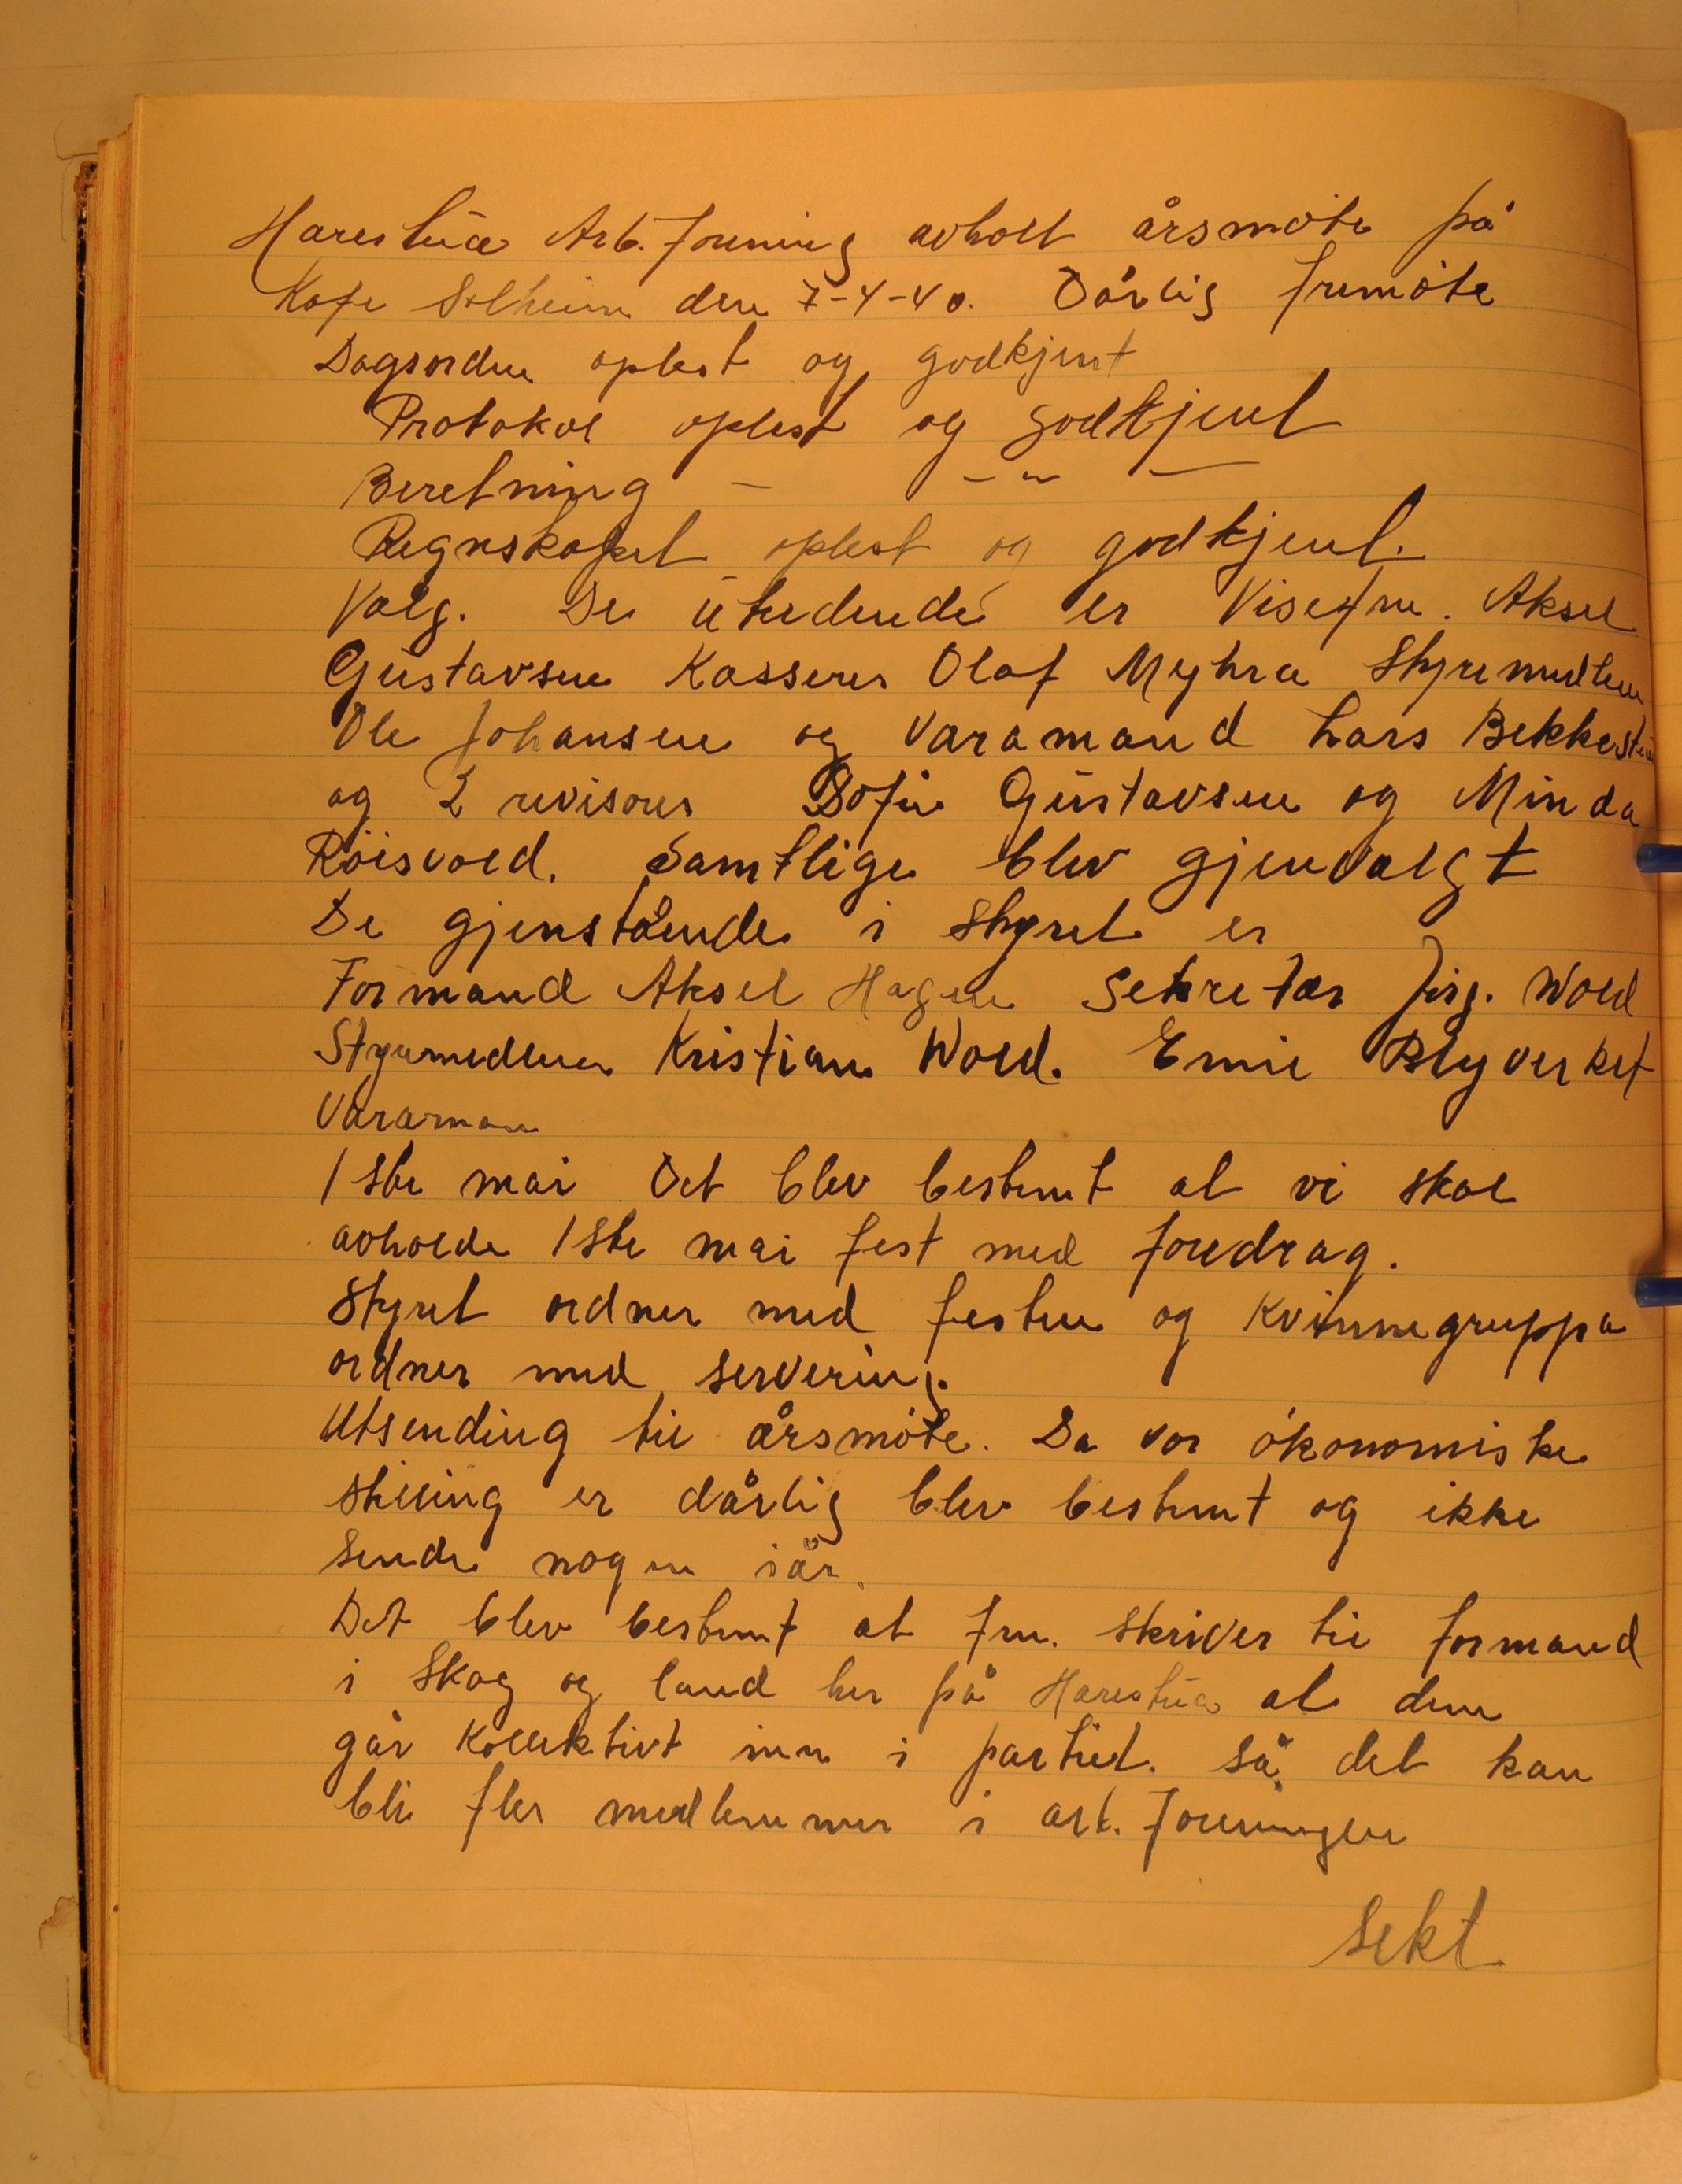 Harestua Arb. forening avholt årsmøte på
Kafe Solheim den 7-4-40. Dårlig fremøte
Dagsorden oplest og godkjent
Protokol oplest og godkjent
Beretning - - " -
Regnskapet oplest og godkjent.
Valg. De utredende er Viseform. Aksel
Gustavsen Kasserer Olaf Myhra Styremedlem
Ole Johansen og Varamand Lars Bekkestein
og 2 revisorer Sofie Gustavsen og Minda
Röisvold. Samtlige blev gjenvalgt
De gjenstående i styret er
Formand Aksel Hagen Sekretær Jørg. Wold
Styremedlem Kristian Wold. Emil Blyverket
Varaman
1ste mai Det blev bestemt at vi skal
avholde 1ste mai fest med foredrag.
Styret ordner med festen og Kvinnegruppa
ordner med servering.
Utsending til årsmøte. Da vor økonomiske
stilling er dårlig blev bestemt og ikke
sende nogen iår.
Det blev bestemt at fm. skriver til formand
i Skog og land her på Harestua at dem
går Kollektivt inn i partiet. så det kan
bli fler medlemmer i arb. foreningen
Sekt